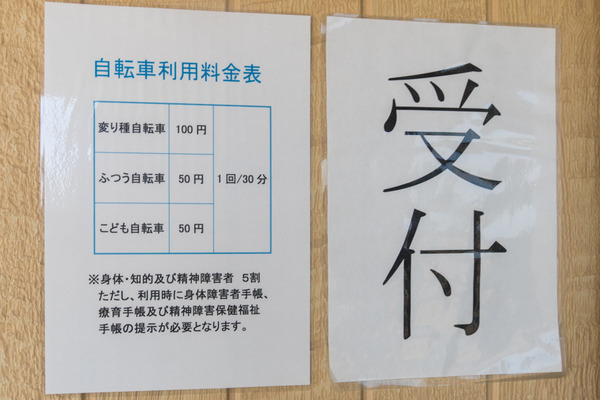 自転車利用料金表
変り種自転車 100円
ふつう自転車 50円 1回/30分
こども自転車 50円
※身体・知的及び精神障害者 5割
ただし、利用時に身体障害者手帳、
療育手帳及び精神障害保健福祉
手帳の提示が必要となります。
受付